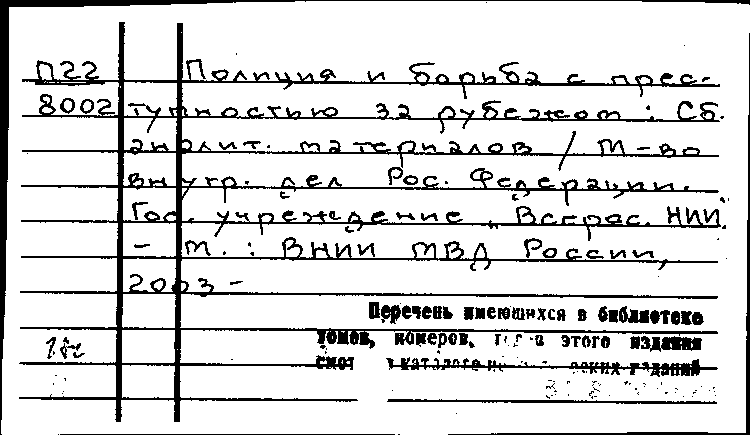 П22 Полиция и борьба с прес-
8002 тупностью за рубежом : Сб.
аналит. материалов / М-во
внутр. дел Рос. Федерации.
Гос. учреждение „Всерос. НИИ".
– М. : ВНИИ МВД России,
2003 –
Перечень имеющихся в библиотеке
томов, номеров, этого издания
смот в каталоге